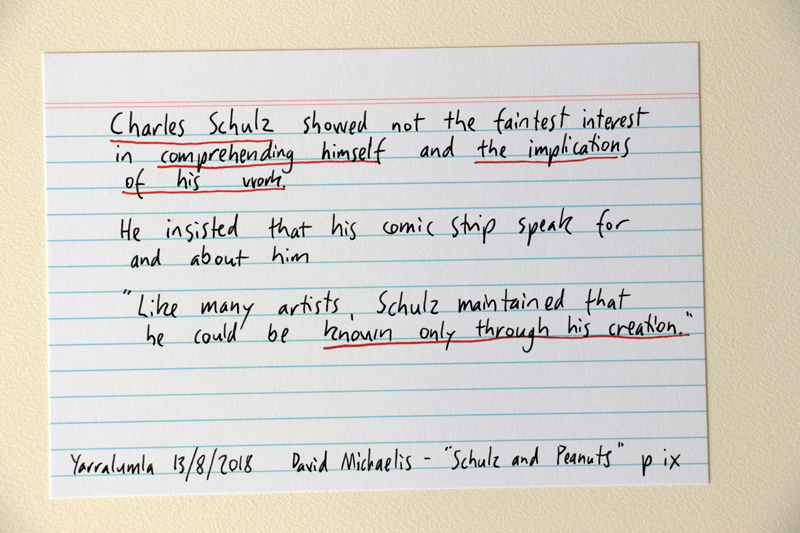 Charles Schulz showed not the faintest interest
in comprehending himself and the implications
of his work.
He insisted that his comic strip speak for
and about him
"Like many artists, Schulz maintained that
he could be known only through his creation."
Yarralumla 13/8/2018 David Michaelis - "Schulz and Peanuts" p ix